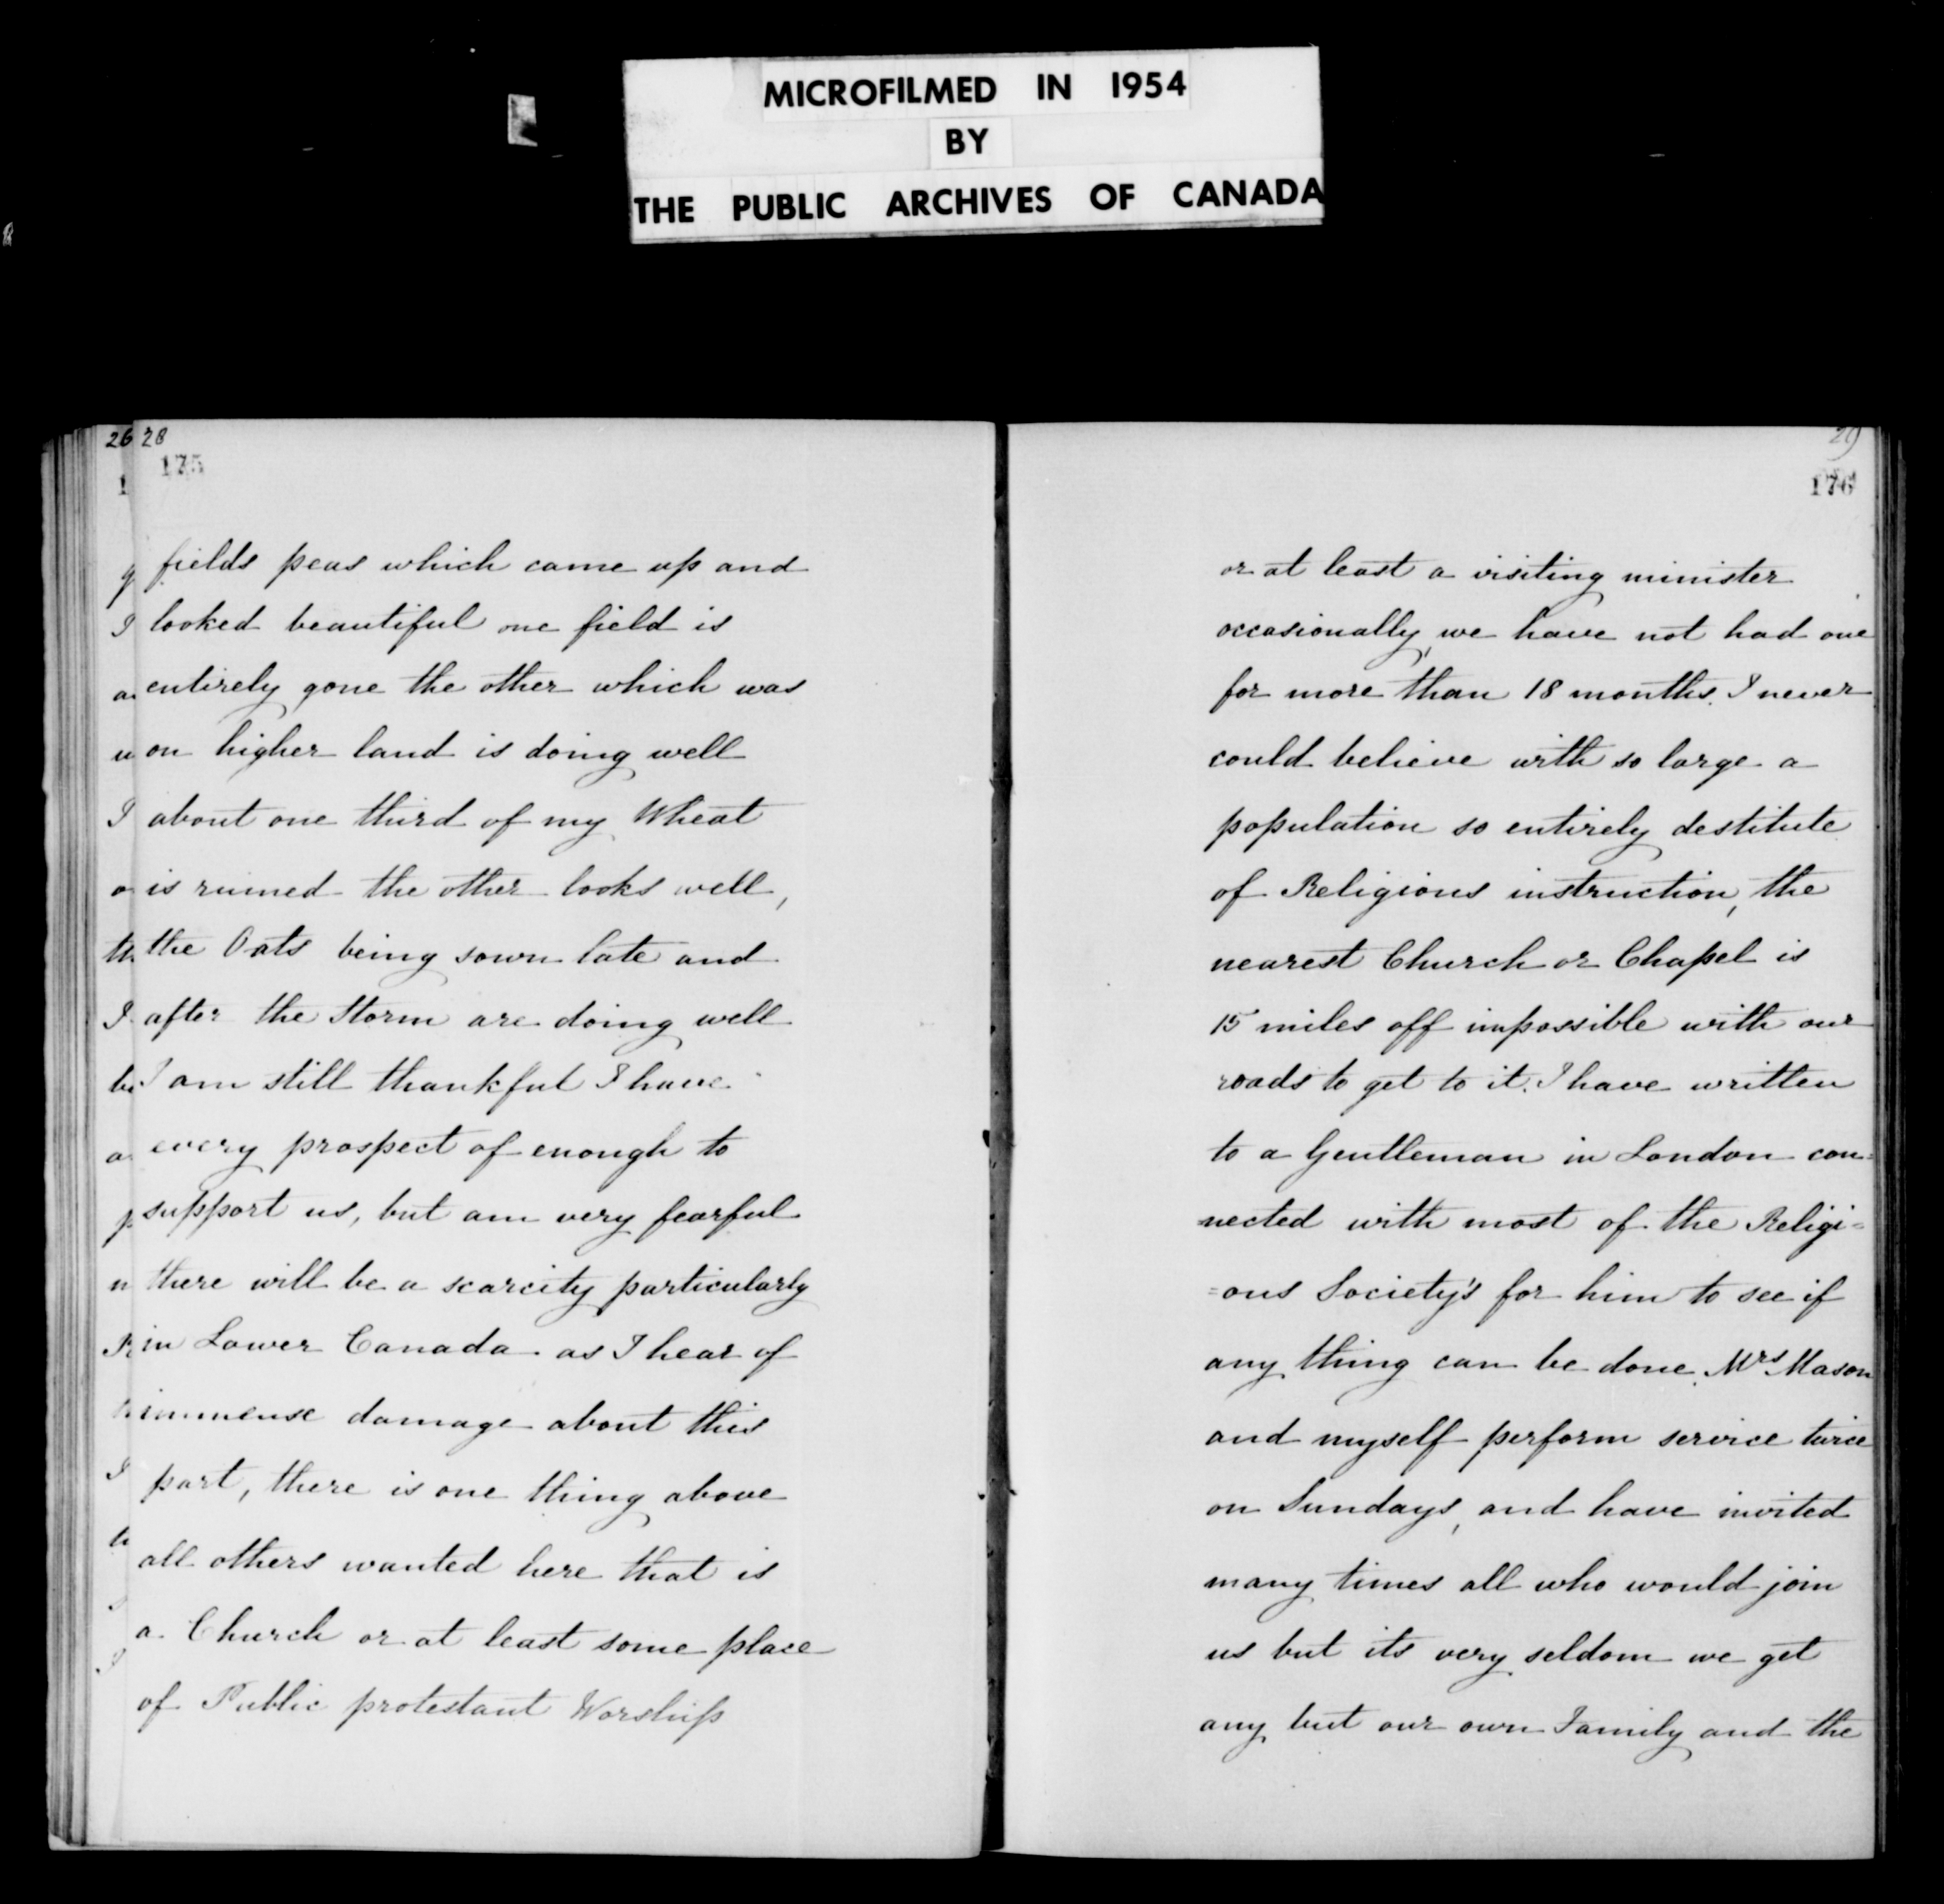 MICROFILMED IN 1954
BY
THE PUBLIC ARCHIVES OF CANADA
26 28
175
fields peas which came up and
looked beautiful one field is
entirely gone the other which was
on higher land is doing well
about one third of my Wheat
is ruined the other looks well,
the Oats being sown late and
after the Storm are doing well
I am still thankful I have
every prospect of enough to
support us, but am very fearful
there will be a scarcity particularly
in Lower Canada as I hear of
immense damage about this
part, there is one thing above
all others wanted here that is
a Church or at least some place
of Public protestant Worship
29
176
or at least a visiting minister
occasionally, we have not had one
for more than 18 months. I never
could believe with so large a
population so entirely destitute
of Religious instruction, the
nearest Church or Chapel is
15 miles off impossible with our
roads to get to it. I have written
to a Gentleman in London con=
nected with most of the Religi=
=ous Society's for him to see if
any thing can be done. Mrs Mason
and myself perform service twice
on Sundays, and have invited
many times all who would join
us but its very seldom we get
any but our own Family and the